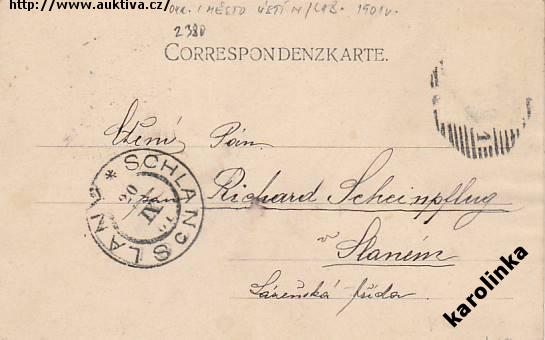 http://www.auktiva.cz/
OKR. I MĚSTO ÚSTÍ N/LAB. 1901v.
2380
CORRESPONDENZKARTE.
Ctěný Pán
pan Richard Scheinpflug
v Slaném
Lázeňská třída.
* SCHLAN * SLANÝ
karolinka